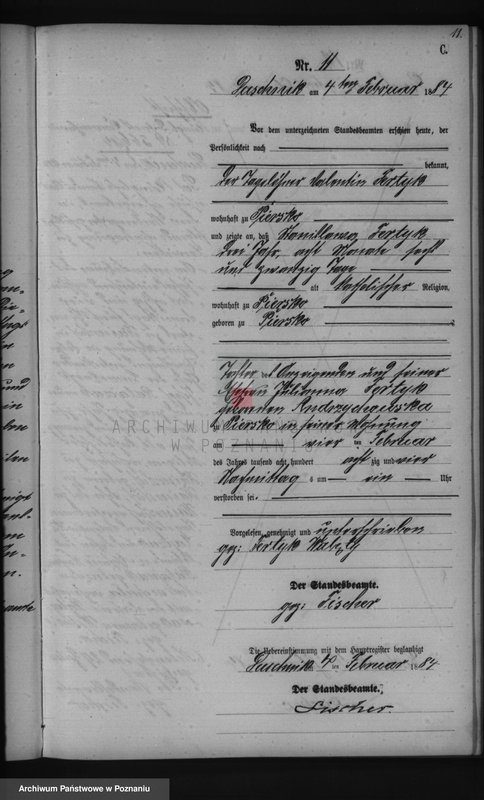 11.
C.
Nr. 11
Duschnik am 4ten Februar 1884
Vor dem unterzeichneten Standesbeamten erschien heute, der
Persönlichkeit nach
bekannt,
der Tagelöhner Valentin Fertyk
wohnhaft zu Piersko
und zeigte an, daß Stanislawa Fertyk
drei Jahr, acht Monate sechs
und zwanzig Tage
alt katholischer Religion,
wohnhaft zu Piersko
geboren zu Piersko
Tochter des Anzeigenden und seiner
Ehefrau Julianna Fertyk
geborenen Andrzychowska
zu Piersko in seiner Wohnung
am vier ten Februar
des Jahres tausend acht hundert acht zig und vier
Nachmittag s um ein Uhr
verstorben sei.
Vorgelesen, genehmigt und unterschrieben
gez: Fertyk
Der Standesbeamte.
gez: Fischer
Die Uebereinstimmung mit dem Hauptregister beglaubigt
Duschnik 4 ten Februar 1884
Der Standesbeamte.
Fischer.
ARCHIWUM
W POZNANIU
Archiwum Państwowe w Poznaniu